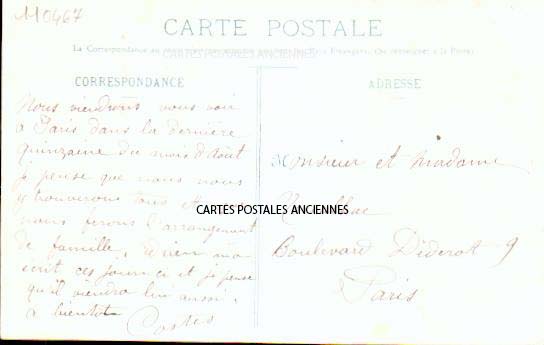 110467
CARTE POSTALE
La Correspondance au
CARTES POSTALES ANCIENNES
CORRESPONDANCE
ADRESSE
Nous viendrons vous voir
à Paris dans la dernière
quinzaine du mois d'août
je pense que nous nous
y trouverons tous
nous ferons l'arrangement
de famille,
écrit ces jours ci et je pense
qu'il viendra lui aussi.
à bientôt
Costes
Monsieur et Madame
CARTES POSTALES ANCIENNES
Boulevard Diderot 9
Paris